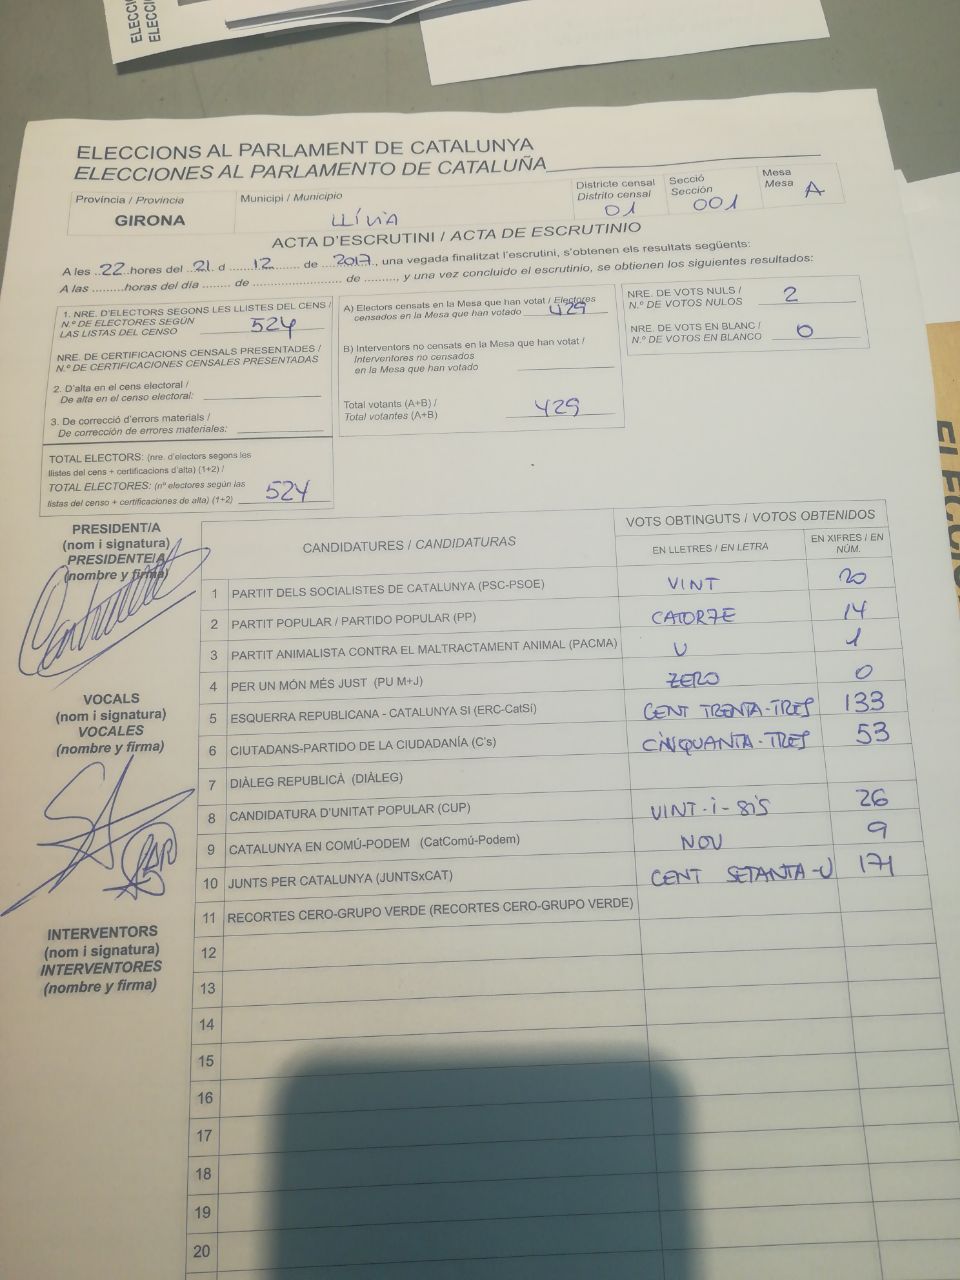 ELECCIONS AL PARLAMENT DE CATALUNYA
ELECCIONES AL PARLAMENTO DE CATALUÑA
Província / Provincia
GIRONA
Municipi / Municipio
LLÍVIA
Districte censal
Distrito censal
01
Secció
Sección
001
Mesa
Mesa A
ACTA D'ESCRUTINI / ACTA DE ESCRUTINIO
A les ..22..hores del .21. d ......12........ de ..2017.., una vegada finalitzat l'escrutini, s'obtenen els resultats següents:
A las .........horas del día ....... de ............................ de .........., y una vez concluido el escrutinio, se obtienen los siguientes resultados:
1. NRE. D'ELECTORS SEGONS LES LLISTES DEL CENS /
N.º DE ELECTORES SEGÚN
LAS LISTAS DEL CENSO 524
NRE. DE CERTIFICACIONS CENSALS PRESENTADES /
N.º DE CERTIFICACIONES CENSALES PRESENTADAS
2. D'alta en el cens electoral /
De alta en el censo electoral:
3. De correcció d'errors materials /
De corrección de errores materiales:
TOTAL ELECTORS: (nre. d'electors segons les
llistes del cens + certificacions d'alta) (1+2) /
TOTAL ELECTORES: (nº electores según las
listas del censo + certificaciones de alta) (1+2) 524
A) Electors censats en la Mesa que han votat / Electores
censados en la Mesa que han votado 429
B) Interventors no censats en la Mesa que han votat /
Interventores no censados
en la Mesa que han votado
Total votants (A+B) /
Total votantes (A+B) 429
NRE. DE VOTS NULS /
N.º DE VOTOS NULOS 2
NRE. DE VOTS EN BLANC /
N.º DE VOTOS EN BLANCO 0
PRESIDENT/A
(nom i signatura)
PRESIDENTE/A
(nombre y firma)
VOCALS
(nom i signatura)
VOCALES
(nombre y firma)
INTERVENTORS
(nom i signatura)
INTERVENTORES
(nombre y firma)
CANDIDATURES / CANDIDATURAS
VOTS OBTINGUTS / VOTOS OBTENIDOS
EN LLETRES / EN LETRA
EN XIFRES / EN
NÚM.
1 PARTIT DELS SOCIALISTES DE CATALUNYA (PSC-PSOE) VINT 20
2 PARTIT POPULAR / PARTIDO POPULAR (PP) CATORZE 14
3 PARTIT ANIMALISTA CONTRA EL MALTRACTAMENT ANIMAL (PACMA) U 1
4 PER UN MÓN MÉS JUST (PU M+J) ZERO 0
5 ESQUERRA REPUBLICANA - CATALUNYA SI (ERC-CatSí) CENT TRENTA-TRES 133
6 CIUTADANS-PARTIDO DE LA CIUDADANÍA (C's) CINQUANTA-TRES 53
7 DIÀLEG REPUBLICÀ (DIÀLEG)
8 CANDIDATURA D'UNITAT POPULAR (CUP) VINT-I-SIS 26
9 CATALUNYA EN COMÚ-PODEM (CatComú-Podem) NOU 9
10 JUNTS PER CATALUNYA (JUNTSxCAT) CENT SETANTA-U 171
11 RECORTES CERO-GRUPO VERDE (RECORTES CERO-GRUPO VERDE)
12
13
14
15
16
17
18
19
20